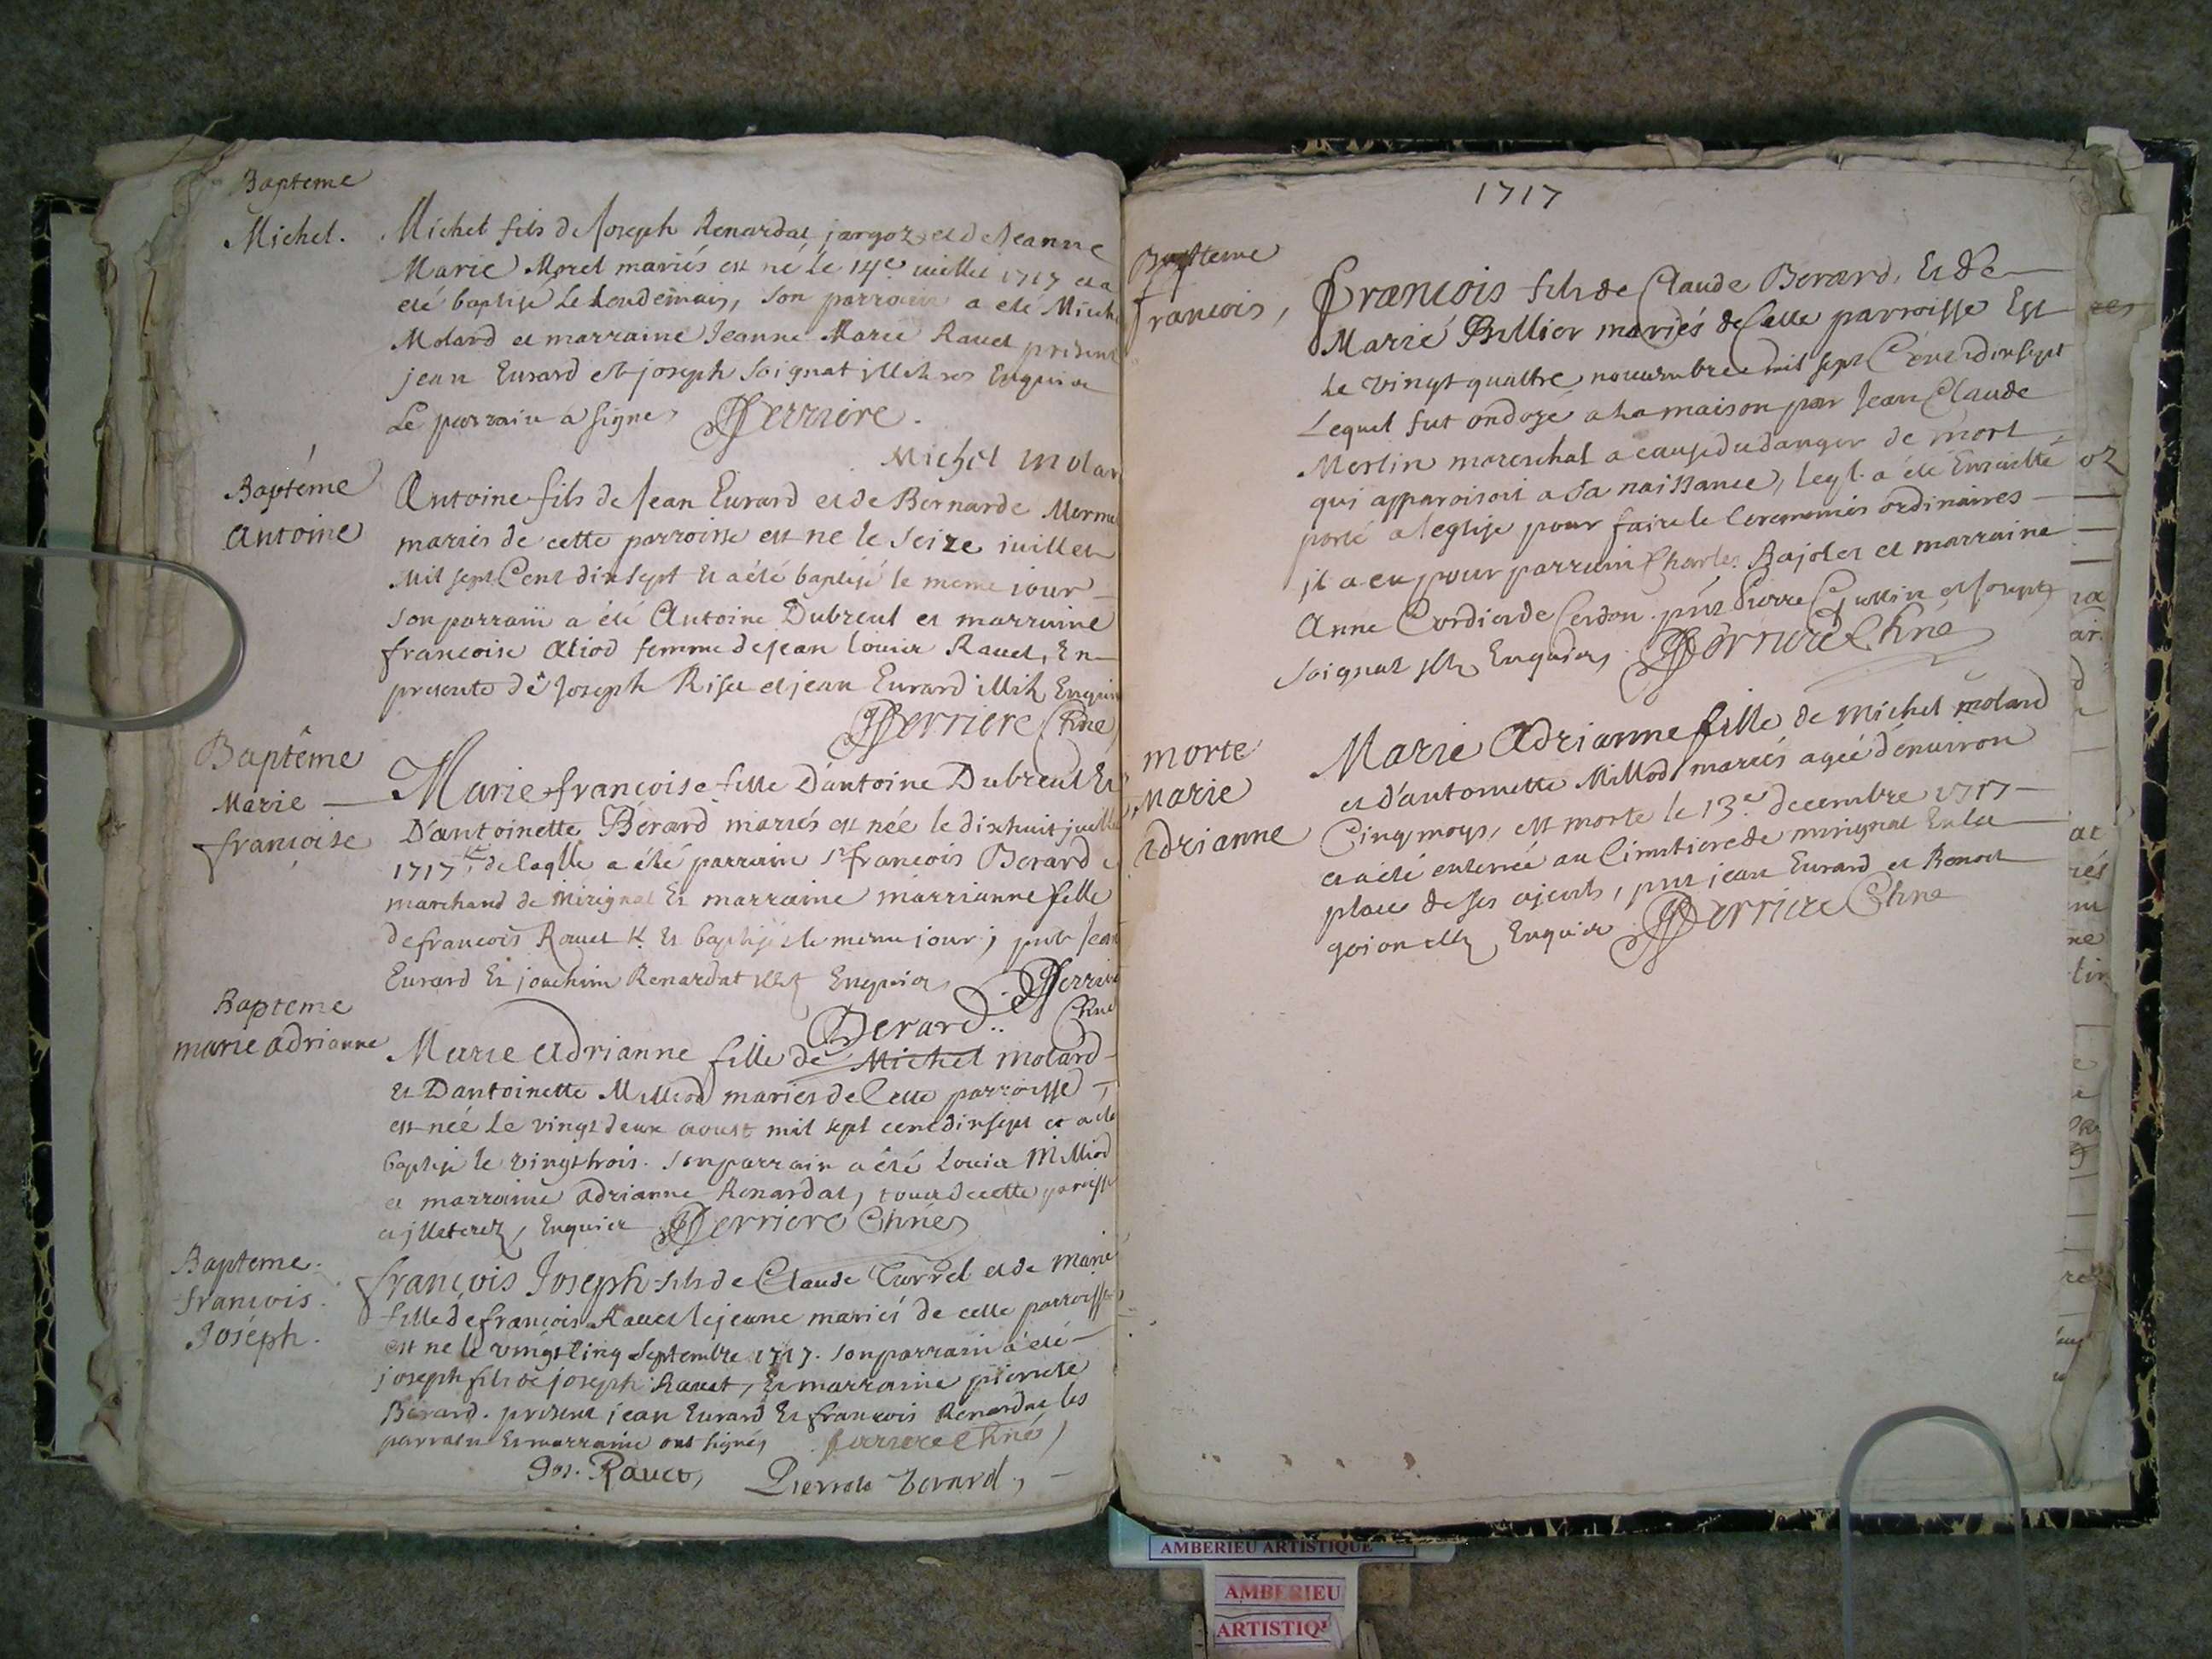 Bapteme
Michel.
Michel fils de Joseph Renardat jargoz et de Jeanne
Marie Morel mariés est né le 14e juillet 1717 et a
eté baptisé le lendemain, son parrain a eté Mich
Molard et marraine Jeanne Marie Ravet present
jean Evrard et joseph Soignat illitrés Enquis
Le parrain a signé Perriere.
Michel molar
Baptéme
Antoine
Antoine fils de Jean Eurard et de Bernarde
mariés de cette parroisse est ne le seize juillet
Mil sept Cent dix sept Et a été baptisé le meme jour
son parrain a été Antoine Dubreul et marraine
francoise Aliod femme de jean louier Rauet, En
presence de Joseph et jean Eurard illit Enquis
Perriere Cune
Baptême
Marie
françoise
Marie françoise fille D'antoine Dubreul Et
D'antoinette Bérard mariés est née le dixhuit juille
1717 de laqlle a été parrain Sr francois Berard
marchand de Mérignat Et marraine marrianne fille
de francois Rauet Et baptisée le meme jour; pnt Jean
Eurard Et joachim Renardat illit Enquis Perrier
Berard..
Bapteme
marie adrianne
Marie Adrianne fille de Michel molard
Et Dantoinette Milliod mariés de Cette parroisse
est née le vingt deux aoust mil sept cent dix sept et a ete
baptisé le vingt trois. son parrain a été Louis Milliod
et marraine adrianne Renardat, tous de cette paroisse
et jlleterez, Enquis Perriere Curé
Bapteme.
francois.
Joséph.
françois Joseph fils de Claude et de Marie
fille de françois Rauet lejeune mariés de cette parroisse
est ne le vingt cinq Septembre 1717. son parrain a été
joseph fils de joseph Rauet, Et marraine pierrete
Bérard. present jean Eurard Et francois Renardat les
parrain Et marraine ont signés perriere Curé
Jos. Rauet, Pierrete berard,
1717
Baptteme
francois,
François fils de Claude Berard, Et de
Marie Bullier mariés de Cette parroisse Est
le vingt quattre nouembre mil sept Cent dix sept
Lequel fut ondoyé a la maison par Jean Claude
Merlin mareschal a cause du danger de mort
qui apparoisoit a sa naissance, leql. a été Ensuitte
porté a l'eglise pour faire le Ceremonies ordinaires
jl a eu pour parrain Charles Bajolet et marraine
Anne Cordier de Cerdon. pnt Pierre Guttin et Joseph
Soignat illit Enquis, Perriere Curé
morte
Marie
adrianne
Marie Adrianne fille de Michel molard
et d'antoinette Milliod mariés agée d'enuiron
Cinq moys, est morte le 13.e decembre 1717
et a été enterrée au Cimetiere de mérignat En la
place de ses ajeuls, pnt jean Eurard et Benoit
gojon illit, Enquis Perriere Cure
AMBERIEU ARTISTIQUE
AMBERIEU
ARTISTIQU